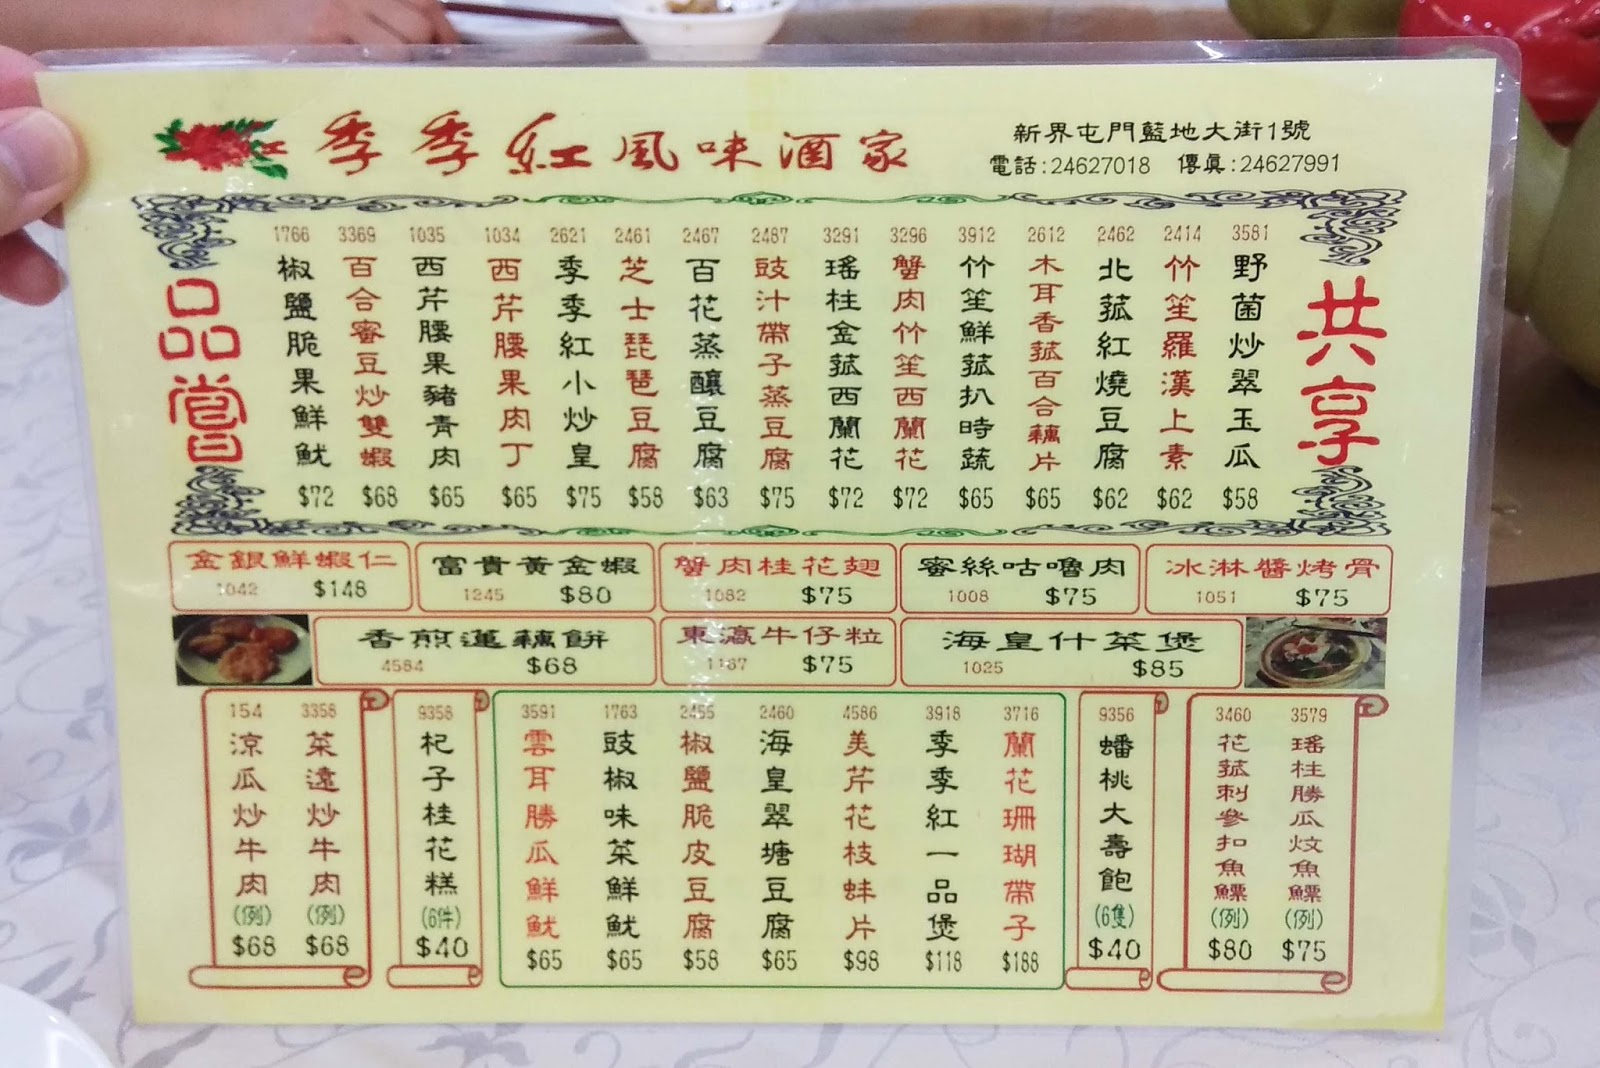 季季紅風味酒家
新界屯門藍地大街1號
電話:24627018 傳真:24627991
共享
品嘗
3581 野菌炒翠玉瓜 $58
2414 竹笙羅漢上素 $62
2462 北菰紅燒豆腐 $62
2612 木耳香菰百合藕片 $65
3912 竹笙鮮菰扒時蔬 $65
3296 蟹肉竹笙西蘭花 $72
3291 瑤柱金菰西蘭花 $72
2487 豉汁帶子蒸豆腐 $75
2467 百花蒸釀豆腐 $63
2461 芝士琵琶豆腐 $58
2621 季季紅小炒皇 $75
1034 西芹腰果肉丁 $65
1035 西芹腰果豬青肉 $65
3369 百合蜜豆炒雙蝦 $68
1766 椒鹽脆果鮮魷 $72
金銀鮮蝦仁 1042 $148
富貴黃金蝦 1245 $80
蟹肉桂花翅 1082 $75
蜜絲咕嚕肉 1008 $75
冰淋醬烤骨 1051 $75
香煎蓮藕餅 4584 $68
東瀛牛仔粒 1187 $75
海皇什菜煲 1025 $85
3579 瑤柱勝瓜炆魚鰾 (例) $75
3460 花菰刺參扣魚鰾 (例) $80
9356 蟠桃大壽飽 (6隻) $40
3716 蘭花珊瑚帶子 $188
3918 季季紅一品煲 $118
4586 美芹花枝蚌片 $98
2460 海皇翠塘豆腐 $65
2455 椒鹽脆皮豆腐 $58
1763 豉椒味菜鮮魷 $65
3591 雲耳勝瓜鮮魷 $65
9358 杞子桂花糕 (6件) $40
3358 菜遠炒牛肉 (例) $68
154 涼瓜炒牛肉 (例) $68